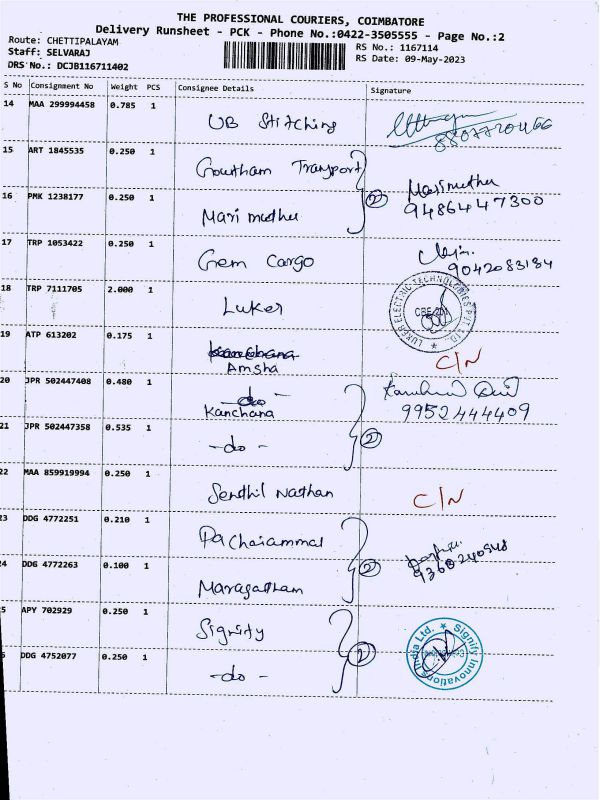 THE PROFESSIONAL COURIERS, COIMBATORE
Delivery Runsheet - PCK - Phone No.:0422-3505555 - Page No.:2
Route: CHETTIPALAYAM
Staff: SELVARAJ
DRS No.: DCJB116711402
RS No.: 1167114
RS Date: 09-May-2023
S No Consignment No Weight PCS Consignee Details Signature
14 MAA 299994458 0.785 1 UB Stitching
15 ART 1845535 0.250 1 Goutham Transport
16 PMK 1238177 0.250 1 Mari muthu 2 Marimuthu
9486447300
17 TRP 1053422 0.250 1 Gem Cargo
9042083184
18 TRP 7111705 2.000 1 Luker LUKER ELECTRIC TECHNOLOGIES PVT LTD. ★
19 ATP 613202 0.175 1 Amsha C/N
20 JPR 502447408 0.480 1 -do-
Kanchana
9952444409
21 JPR 502447358 0.535 1 -do- 2
22 MAA 859919994 0.250 1 Senthil Nathan C/N
23 DDG 4772251 0.210 1 Pachaiammal
24 DDG 4772263 0.100 1 Maragatham 2
25 APY 702929 0.250 1 Signity
DDG 4752077 0.250 1 -do- 2 Signify Innovations India Ltd. ★